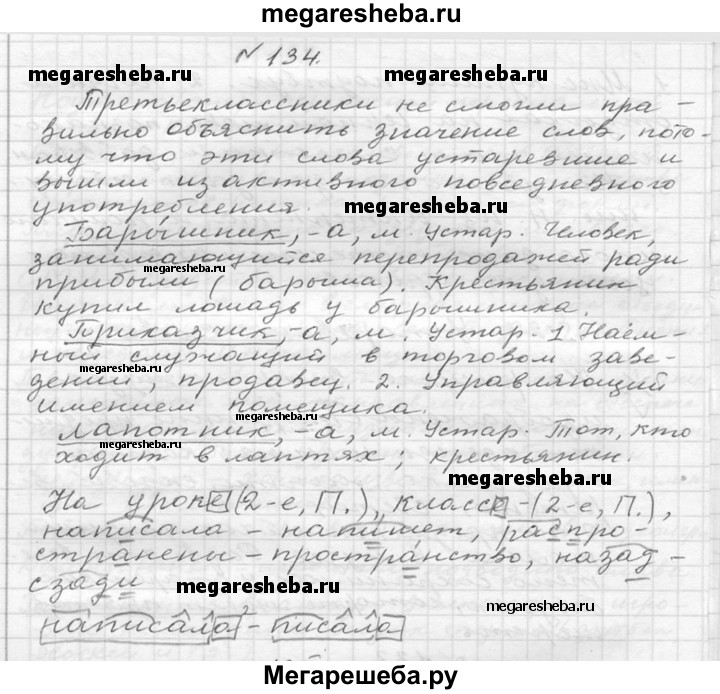 megaresheba.ru
№ 134.
megaresheba.ru megaresheba.ru
Третьеклассники не смогли пра-
вильно объяснить значение слов, пото-
му что эти слова устаревшие и
вышли из активного повседневного
употребления. megaresheba.ru
Барышник, -а, м. Устар. Человек,
занимающийся перепродажей ради
megaresheba.ru
прибыли (барыша). Крестьянин
купил лошадь у барышника.
Приказчик, -а, м. Устар. 1 Наём-
ный служащий в торговом заве-
megaresheba.ru megaresheba.ru
дении, продавец. 2. Управляющий
имением помещика.
megaresheba.ru
Лапотник, -а, м. Устар. Тот, кто
megaresheba.ru
ходит в лаптях; крестьянин.
На уроке (2-е, П.), классе - (2-е, П.),
написала - напишет, распро-
странены - пространство, назад -
сзади megaresheba.ru
megaresheba.ru
написала - писала
Мегарешеба.ру